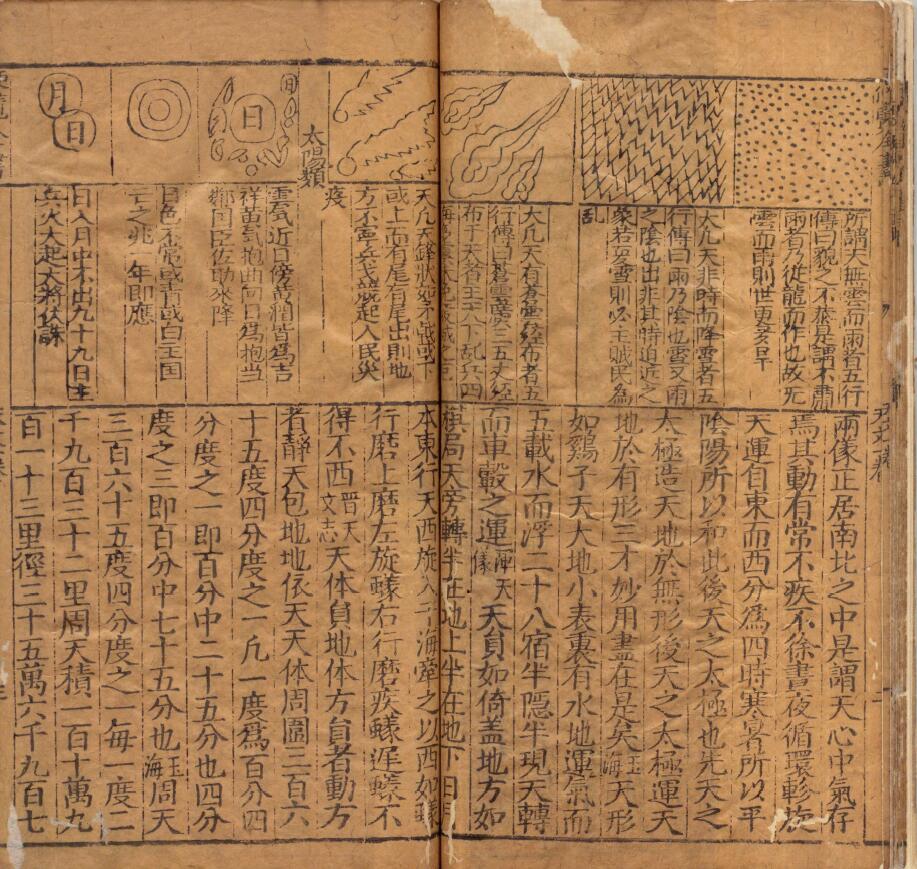 所謂天無雲而雨者五行
傳曰貌之不恭是謂不肅
兩者乃從龍而作也故先
雲而雨則世更多旱
大凡天非時而降雪者五
行傳曰雨乃陰也雪又雨
之陰也出非其時迫近之
象若有雪則必主賊民為
乱
大凡天有蒼雲經布者五
行傳曰蒼雲廣三五丈經
布于天者主天下乱兵四
兩儀正居南北之中是謂天心中氣存
焉其動有常不疾不徐晝夜循環軫旋
天運自東而西分為四時寒暑所以平
陰陽所以和此後天之太極也先天之
太極造天地於無形後天之太極運天
地於有形三才妙用盡在是矣玉海天形
如鷄子天大地小表裏有水地運氣而
五載水而浮二十八宿半隱半現天轉
而車轂之運渾天儀天員如倚盖地方如
棋局天旁轉半在地上半在地下日
太陽類
日
日
日
月
日
天凡天鋒狀如
或上而有尾有尾出則地
方不寧兵戈競起人民災
疫
雲氣近日傍黄潤皆為吉
祥黄氣抱曲向日為抱當
鄰国臣佐助來降
日色不常或青或白主国
亡之兆一年即應
日入月中不出九十九日主
兵火大起大將伏誅
本東行天西旋入于海牽之以西如蟻
行磨上磨左旋蟻右行磨疾蟻遲蟻不
得不西晋天文志天体員地体方員者動方
者靜天包地地依天天体周圍三百六
十五度四分度之一凡一度為百分四
分度之一即百分中二十五分也四分
度之三即百分中七十五分也玉海周天
三百六十五度四分度之一每一度二
千九百三十二里周天積一百十萬九
百一十三里徑三十五萬六千九百七